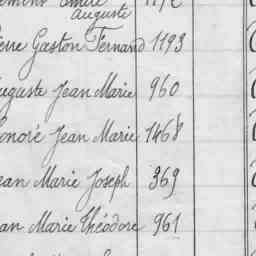 Auguste
Gaston Fernand 1193
Auguste Jean Marie 960
Honoré Jean Marie 1468
Jean Marie Joseph 369
Jean Marie Théodore 961